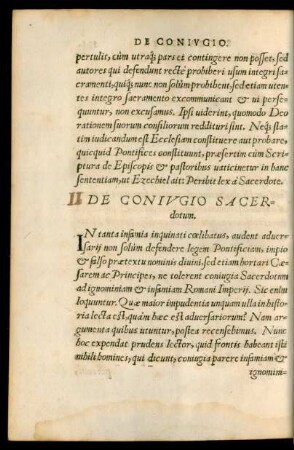 DE CONIVGIO.
pertulit, cùm utraq́; pars ei contingere non posset, sed
autores qui defendunt rectè prohiberi usum integri sa-
cramenti, quiq́; nunc non solùm prohibent, sed etiam uten-
tes integro sacramento excommunicant & ui perse-
quuntur, non excusamus. Ipsi uiderint, quomodo Deo
rationem suorum consiliorum reddituri sint. Neq́; sta-
tim iudicandum est Ecclesiam constituere aut probare,
quicquid Pontifices constituunt, præsertim cùm Scri-
ptura de Episcopis & pastoribus uaticinetur in hanc
sententiam, ut Ezechiel ait: Peribit lex à Sacerdote.
II DE CONIVGIO SACER-
dotum.
IN tanta infamia inquinati cœlibatus, audent aduer-
sarij non solùm defendere legem Pontificiam, impio
& falso prætextu nominis diuini, sed etiam hortari Cæ-
sarem ac Principes, ne tolerent coniugia Sacerdotum
ad ignominiam & infamiam Romani Imperij. Sic enim
loquuntur. Quæ maior impudentia unquam ulla in histo-
ria lecta est, quàm hæc est aduersariorum? Nam ar-
gumenta quibus utuntur, postea recensebimus. Nunc
hoc expendat prudens lector, quid frontis habeant isti
nihili homines, qui dicunt, coniugia parere infamiam &
ignomini-